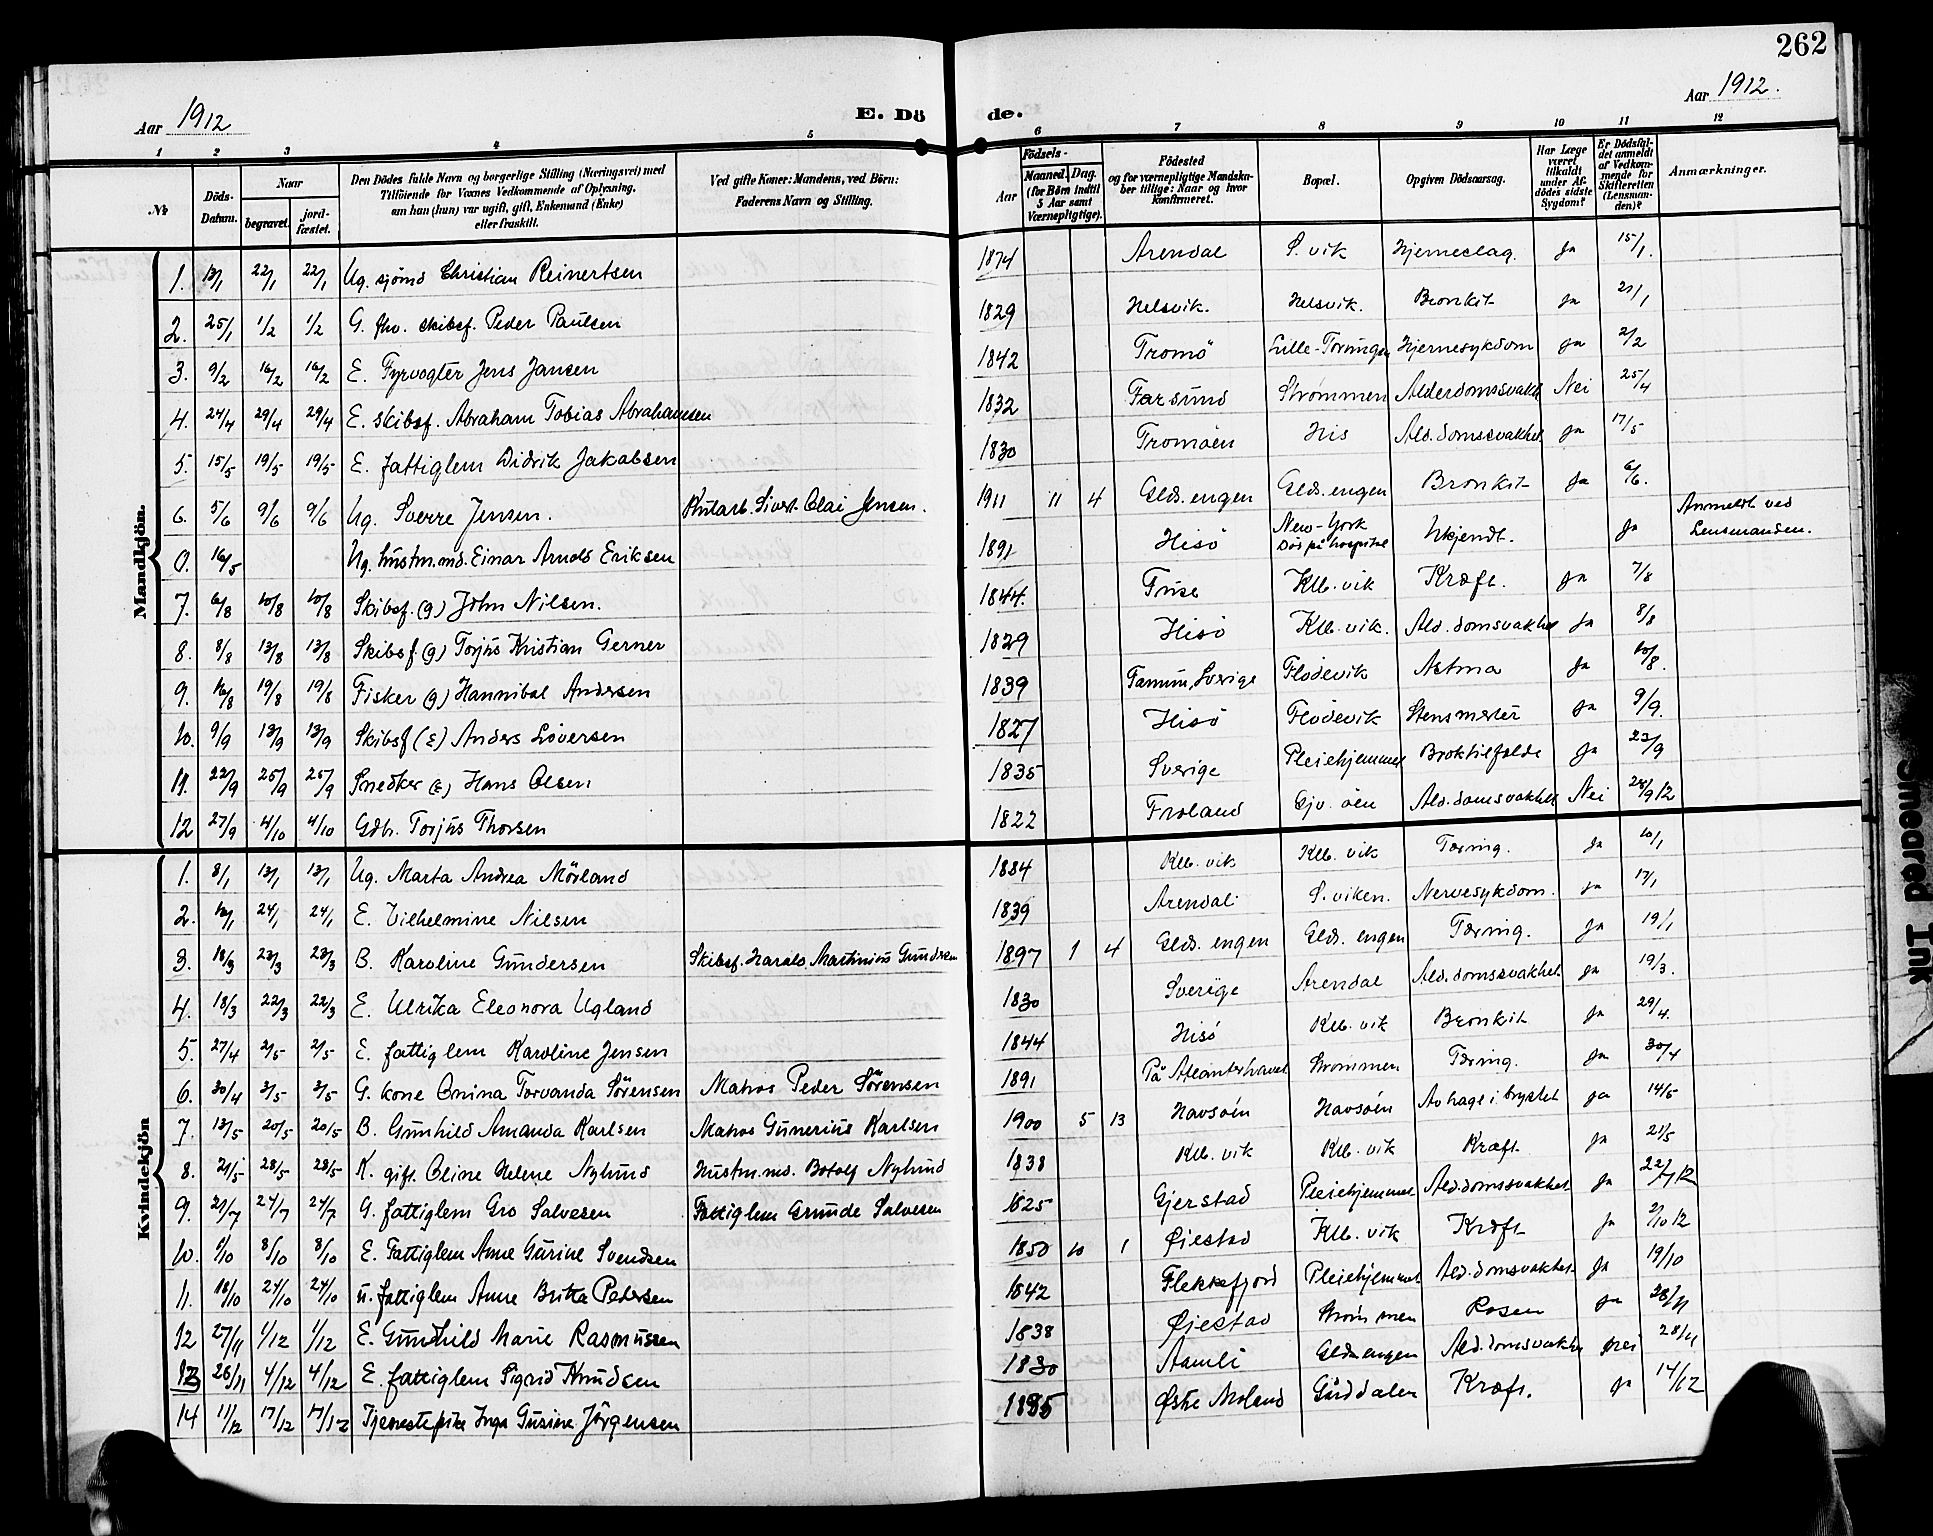 262
Aar 1912
E. Döde.
Aar 1912.
1 2 3 4 5 6 7 8 9 10 11 12
№
Döds-Datum.
Naar
begravet. jordfæstet.
Den Dödes fulde Navn og borgerlige Stilling (Næringsvei) med Tilföiende for Voxnes Vedkommende af Oplysning, om han (hun) var ugift, gift, Enkemand (Enke) eller fraskilt.
Ved gifte Koner: Mandens, ved Börn: Faderens Navn og Stilling.
Födsels-
Aar
Maaned. Dag.
(for Börn indtil 5 Aar samt Værnepligtige).
Födested og for værnepligtige Mandskaber tillige: Naar og hvor konfirmeret.
Bopæl.
Opgiven Dödsaarsag.
Har Læge været tilkaldt under Afdödes sidste Sygdom?
Er Dödsfaldet anmeldt af Vedkommende for Skifteretten (Lensmanden)?
Anmærkninger.
Mandkjön.
1. 13/1 22/1 22/1 Ug. sjömd Christian Reinertsen 1874 Arendal S. vik Hjerneslag. ja 15/1.
2. 25/1 1/2 1/2 G. fhv. skibsf. Peder Paulsen 1829 Helsvik. Helsvik. Bronkit ja 27/1
3. 9/2 16/2 16/2 E. Fyrvogter Jens Jansen 1842 Tromö Lille-Torungen Hjernesykdom ja 2/2
4. 24/4 29/4 29/4 E. skibsf. Abraham Tobias Abrahamsen 1832 Farsund Strømmen Alderdomssvakh Nei 25/4
5. 15/5 19/5 19/5 E. fattiglem Didrik Jakobsen 1830 Tromøen His Ald.domssvakhet ja 17/5
6. 5/6 9/6 9/6 Ug. Sverre Jensen. Kularb. Sivert Olai Jensen. 1911 11 4 Glds.engen Glds.engen Bronkit ja 6/6.
0. 16/5 Ug. Hustm.md. Einar Arnds Eriksen 1891 Hisö New-York Död på hospital Ukjendt. ja Anmeldt ved Lensmanden.
7. 6/8 10/8 10/8 Skibsf. (g) John Nilsen. 1844. Fuse Klb. vik Kræft. ja 7/8
8. 8/8 13/8 13/8 Skibsf (g) Torjus Kristian Gerner 1829 Hisö Klb. vik. Ald.domsvakhet ja 8/8
9. 16/8 19/8 19/8 Fisker (g) Hannibal Andersen 1839 Tanum, Sverige Flodevik Astma ja 10/8.
10. 9/9 13/9 13/9 Skibsf (E) Anders Siversen 1827 Hisö Flodevik Stensmerter ja 9/9.
11. 22/9 25/9 25/9 Snedker (E) Hans Olsen 1835 Sverige Pleiehjemmet Broktilfælde ja 23/9
12 27/9 4/10 4/10 Gdbr. Torjus Thorsen 1822 Froland Gjv. öen Ald.domsvakhet Nei 28/9 12
Kvindekjön
1. 8/1 13/1 13/1 Ug. Marta Andrea Mörland 1884 Klb. vik Klb. vik Tæring. ja 10/1
2. 16/1 24/1 24/1 E. Vilhelmine Nilsen 1839 Arendal S. viken. Nervesykdom. ja 17/1
3. 18/3 23/3 23/3 B. Karoline Gundersen Skibsf. Harald Martinius Gundersen 1897 1 4 Glds. engen Glds. engen Tæring. ja 19/1
4. 18/3 22/3 22/3 E. Ulrika Eleonora Ugland 1830 Sverige Arendal Ald.domssvakhet ja 19/3.
5. 27/4 2/5 2/5 E. fattiglem Karoline Jensen 1844 Hisö Klb. vik Bronkit ja 29/4.
6. 30/4 3/5 3/5 G. kone Onina Torvanda Sörensen Matros Peder Sörensen 1891 På Atlanterhavet Strømmen Tæring. ja 30/4
7. 13/5 20/5 20/5 B. Gunhild Amanda Karlsen Matros Gunerius Karlsen 1900 5 13 Havsöen Havsöen ja 14/5
8. 21/5 28/5 28/5 K. gift. Oline Helene Nylund Hustm.md. Botolf Nylund 1838 Klb. vik Klb. vik Kræft. ja 21/5
9. 21/7 24/7 24/7 G. fattiglem Gro Salvesen Fattiglem Grunde Salvesen 1825 Gjerstad Pleiehjemmet Ald.domssvakhet ja 22/7 12
10. 1/10 8/10 8/10 E. Fattiglem Anne Gurine Svendsen 1850 10 1 Øiestad Klb. vik Kræft ja 2/10 12
11. 18/10 24/10 24/10 u. fattiglem Anne Britta Petersen 1842 Flekkefjord Pleiehjemmet Ald.domsvakhet ja 19/10
12 27/11 1/12 1/12 E. Gundhild Marie Rasmussen 1838 Øjestad Strømmen Rosen ja 28/11
13 26/11 4/12 4/12 E. fattiglem Sigrid Knudsen 1830 Aamli Gldsengen Ald.domsvakhe nei 28/11
14 11/12 17/12 17/12 Tjenestepike Inga Gusine Jörgensen 1885 Østre Moland Gårddalen Kræft. ja 14/12
Smeared Ink